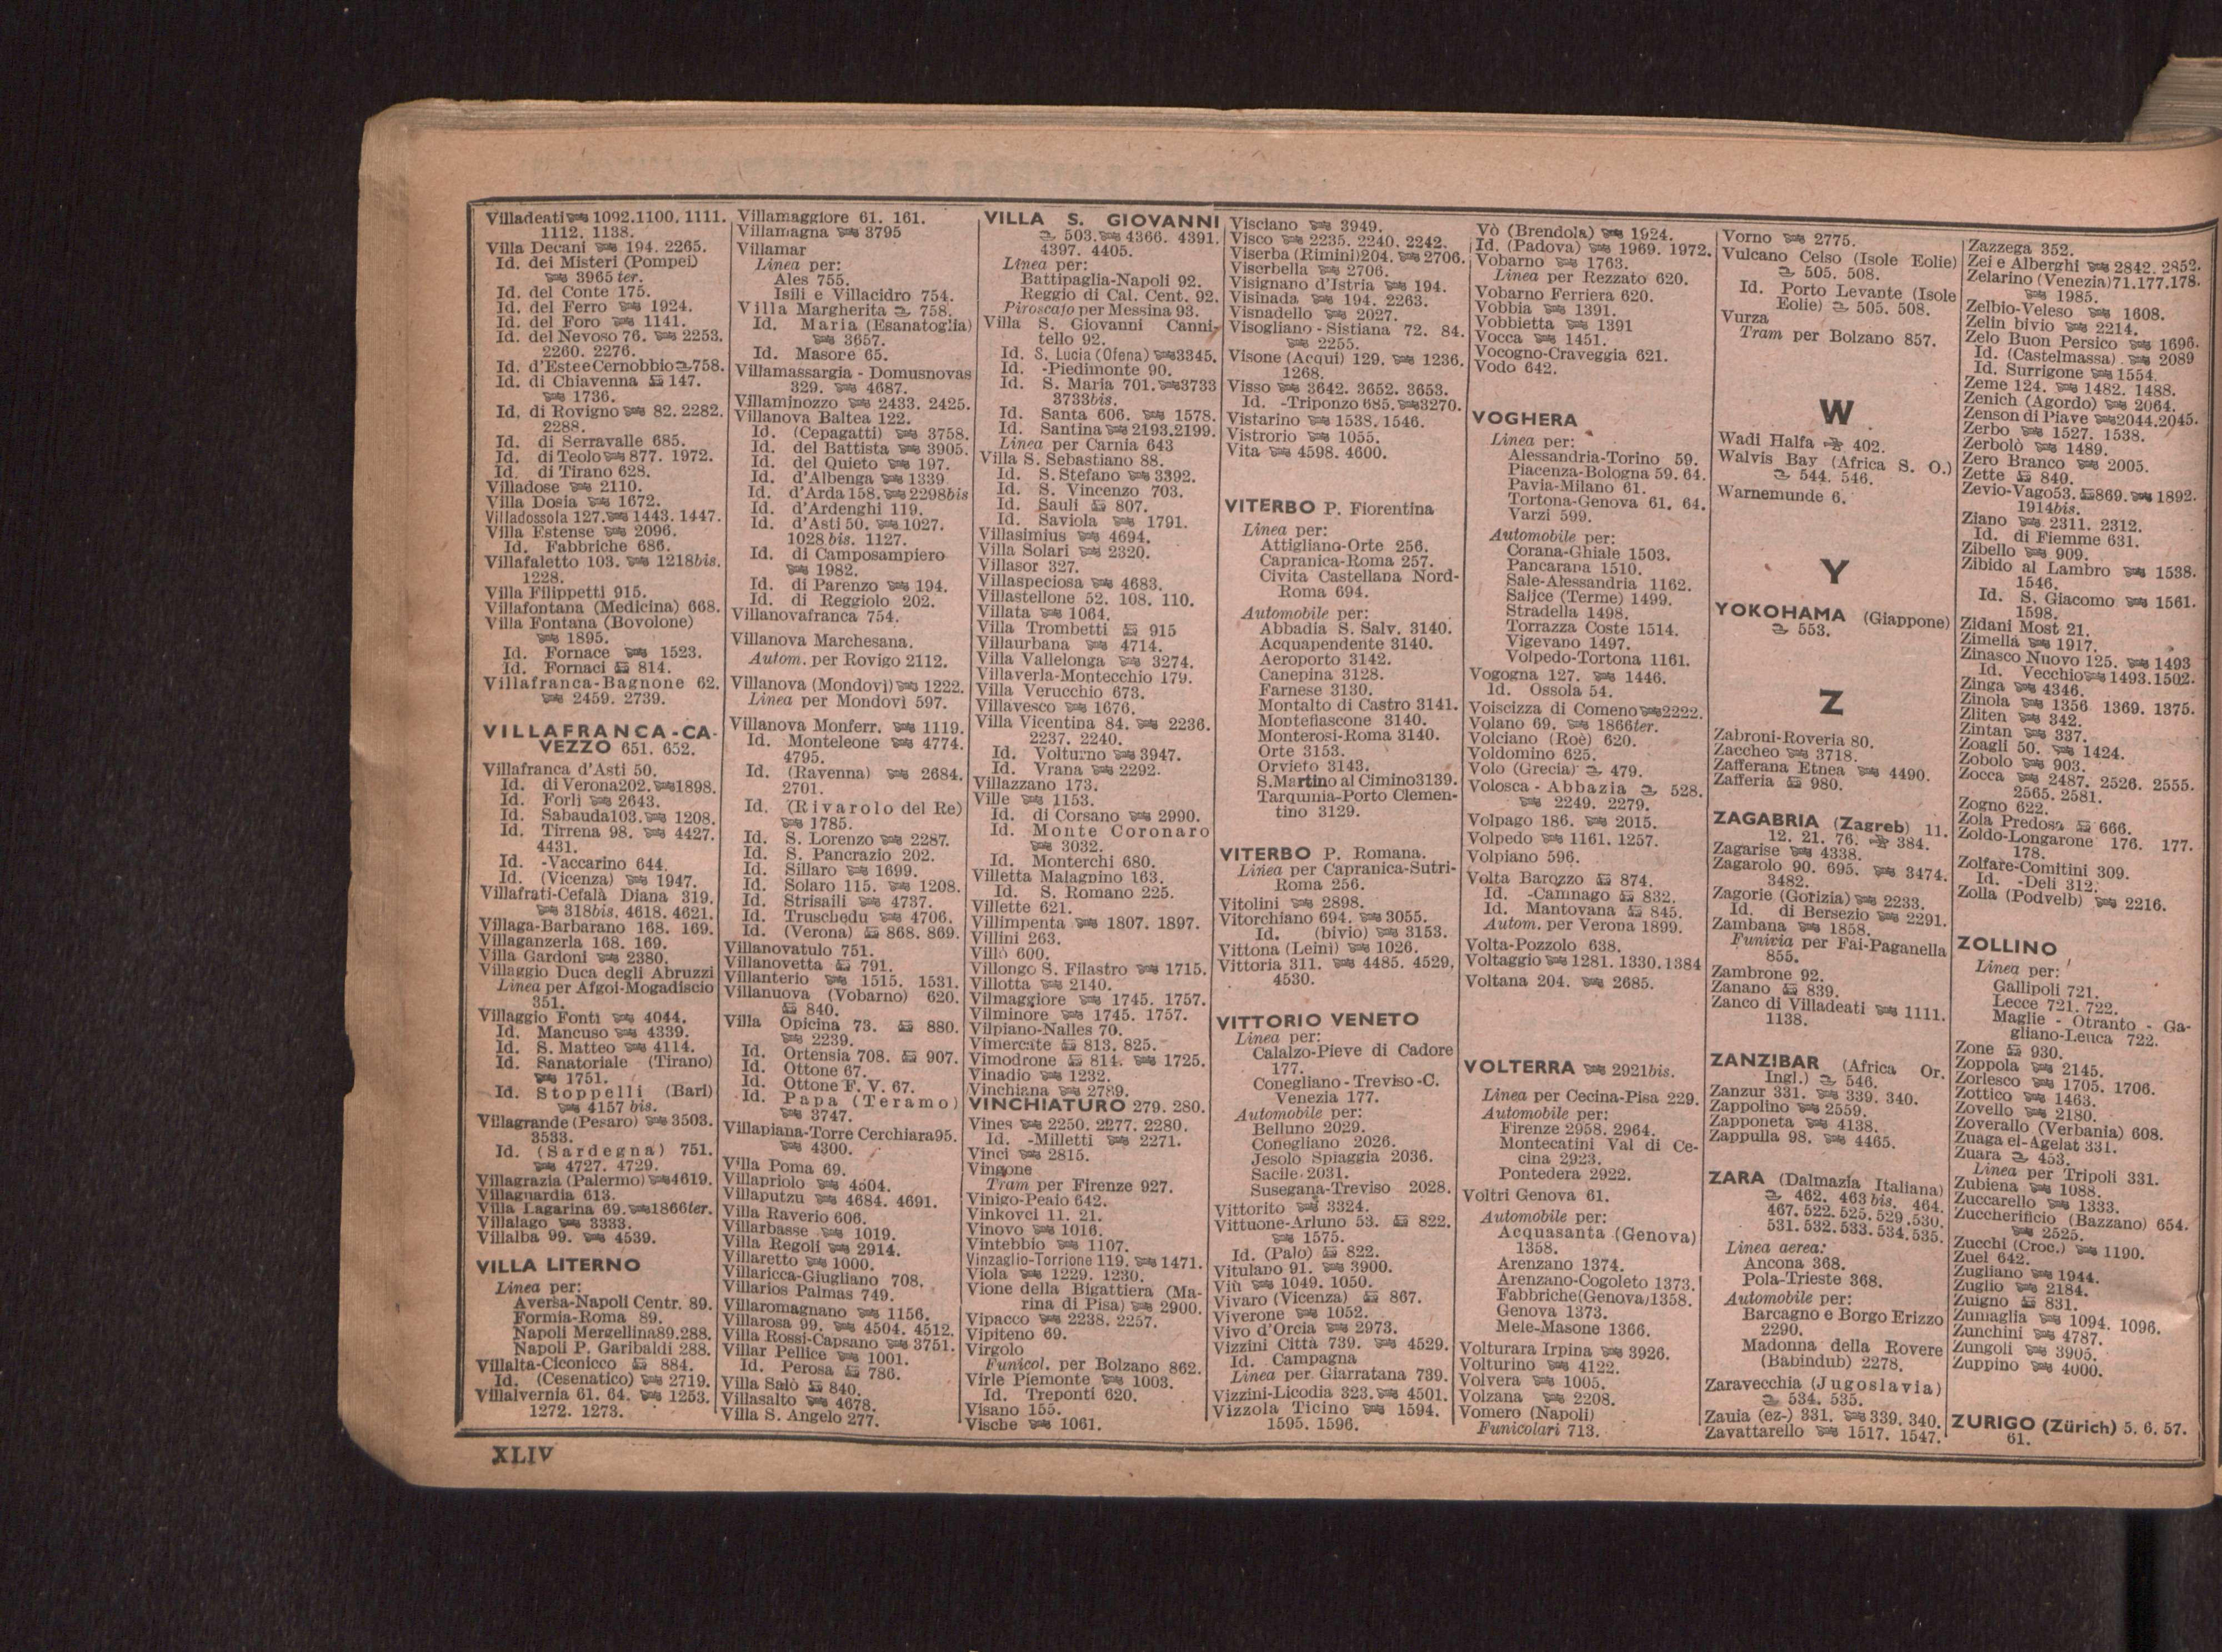 Villadeati 1092.1100.1111.
1112. 1138.
Villa Decani 194. 2265.
Id. dei Misteri (Pompei)
3965 ter.
Id. del Conte 175.
Id. del Ferro 1924.
Id. del Foro 1141.
Id. del Nevoso 76. 2253.
2260. 2276.
Id. d'Este e Cernobbio 758.
Id. di Chiavenna 147.
1736.
Id. di Rovigno 82. 2282.
2288.
Id. di Serravalle 685.
Id. di Teolo 877. 1972.
Id. di Tirano 628.
Villadose 2110.
Villa Dosia 1672.
Villadossola 127. 1443. 1447.
Villa Estense 2096.
Id. Fabbriche 686.
Villafaletto 103. 1218bis.
1228.
Villa Filippetti 915.
Villafontana (Medicina) 668.
Villa Fontana (Bovolone)
1895.
Id. Fornace 1523.
Id. Fornaci 814.
Villafranca-Bagnone 62.
2459. 2739.
VILLAFRANCA-CA-
VEZZO 651. 652.
Villafranca d'Asti 50.
Id. di Verona 202. 1898.
Id. Forlì 2643.
Id. Sabauda 103. 1208.
Id. Tirrena 98. 4427.
4431.
Id. -Vaccarino 644.
Id. (Vicenza) 1947.
Villafrati-Cefalà Diana 319.
318bis. 4618. 4621.
Villaga-Barbarano 168. 169.
Villaganzerla 168. 169.
Villa Gardoni 2380.
Villaggio Duca degli Abruzzi
Linea per Afgoi-Mogadiscio
351.
Villaggio Fonti 4044.
Id. Mancuso 4339.
Id. S. Matteo 4114.
Id. Sanatoriale (Tirano)
1751.
Id. Stoppelli (Bari)
4157 bis.
Villagrande (Pesaro) 3503.
3533.
Id. (Sardegna) 751.
4727. 4729.
Villagrazia (Palermo) 4619.
Villaguardia 613.
Villa Lagarina 69. 1866ter.
Villalago 3333.
Villalba 99. 4539.
VILLA LITERNO
Linea per:
Aversa-Napoli Centr. 89.
Formia-Roma 89.
Napoli Mergellina 89.288.
Napoli P. Garibaldi 288.
Villalta-Ciconicco 884.
Id. (Cesenatico) 2719.
Villalvernia 61. 64. 1253.
1272. 1273.
Villamaggiore 61. 161.
Villamagna 3795
Villamar
Linea per:
Ales 755.
Isili e Villacidro 754.
Villa Margherita 758.
Id. Maria (Esanatoglia)
3657.
Id. Masore 65.
Villamassargia - Domusnovas
329. 4687.
Villaminozzo 2433. 2425.
Villanova Baltea 122.
Id. (Cepagatti) 3758.
Id. del Battista 3905.
Id. del Quieto 197.
Id. d'Albenga 1339
Id. d'Arda 158. 2298bis
Id. d'Ardenghi 119.
Id. d'Asti 50. 1027.
1028 bis. 1127.
Id. di Camposampiero
1982.
Id. di Parenzo 194.
Id. di Reggiolo 202.
Villanovafranca 754.
Villanova Marchesana.
Autom. per Rovigo 2112.
Villanova (Mondovì) 1222.
Linea per Mondovì 597.
Villanova Monferr. 1119.
Id. Monteleone 4774.
4795.
Id. (Ravenna) 2684.
2701.
Id. (Rivarolo del Re)
1785.
Id. S. Lorenzo 2287.
Id. S. Pancrazio 202.
Id. Sillaro 1699.
Id. Solaro 115. 1208.
Id. Strisaili 4737.
Id. Truschedu 4706.
Id. (Verona) 868. 869.
Villanovatulo 751.
Villanovetta 791.
Villanterio 1515. 1531.
Villanuova (Vobarno) 620.
840.
Villa Opicina 73. 880.
2239.
Id. Ortensia 708. 907.
Id. Ottone 67.
Id. Ottone F. V. 67.
Id. Papa (Teramo)
3747.
Villapiana-Torre Cerchiara 95.
4300.
Villa Poma 69.
Villapriolo 4504.
Villaputzu 4684. 4691.
Villa Raverio 606.
Villarbasse 1019.
Villa Regoli 2914.
Villaretto 1000.
Villaricca-Giugliano 708.
Villarios Palmas 749.
Villaromagnano 1156.
Villarosa 99. 4504. 4512.
Villa Rossi-Capsano 3751.
Villar Pellice 1001.
Id. Perosa 786.
Villa Salò 840.
Villasalto 4678.
Villa S. Angelo 277.
VILLA S. GIOVANNI
503. 4366. 4391.
4397. 4405.
Linea per:
Battipaglia-Napoli 92.
Reggio di Cal. Cent. 92.
Piroscafo per Messina 93.
Villa S. Giovanni Canni-
tello 92.
Id. S. Lucia (Ofena) 3345.
Id. -Piedimonte 90.
Id. S. Maria 701. 3733
3733bis.
Id. Santa 606. 1578.
Id. Santina 2193.2199.
Linea per Carnia 643
Villa S. Sebastiano 88.
Id. S. Stefano 3392.
Id. S. Vincenzo 703.
Id. Sauli 807.
Id. Saviola 1791.
Villasimius 4694.
Villa Solari 2320.
Villasor 327.
Villaspeciosa 4683.
Villastellone 52. 108. 110.
Villata 1064.
Villa Trombetti 915
Villaurbana 4714.
Villa Vallelonga 3274.
Villaverla-Montecchio 179.
Villa Verucchio 673.
Villavesco 1676.
Villa Vicentina 84. 2236.
2237. 2240.
Id. Volturno 3947.
Id. Vrana 2292.
Villazzano 173.
Ville 1153.
Id. di Corsano 2990.
Id. Monte Coronaro
3032.
Id. Monterchi 680.
Villetta Malagnino 163.
Id. S. Romano 225.
Villette 621.
Villimpenta 1807. 1897.
Villini 263.
Villò 600.
Villongo S. Filastro 1715.
Villotta 2140.
Vilmaggiore 1745. 1757.
Vilminore 1745. 1757.
Vilpiano-Nalles 70.
Vimercate 813. 825.
Vimodrone 814. 1725.
Vinadio 1232.
Vinchiana 2789.
VINCHIATURO 279. 280.
Vines 2250. 2277. 2280.
Id. -Milletti 2271.
Vinci 2815.
Vingone
Tram per Firenze 927.
Vinigo-Peaio 642.
Vinkovci 11. 21.
Vinovo 1016.
Vintebbio 1107.
Vinzaglio-Torrione 119. 1471.
Viola 1229. 1230.
Vione della Bigattiera (Ma-
rina di Pisa) 2900.
Vipacco 2238. 2257.
Vipiteno 69.
Virgolo
Funicol. per Bolzano 862.
Virle Piemonte 1003.
Id. Treponti 620.
Visano 155.
Vische 1061.
Visciano 3949.
Visco 2235. 2240. 2242.
Viserba (Rimini) 204. 2706.
Viserbella 2706.
Visignano d'Istria 194.
Visinada 194. 2263.
Visnadello 2027.
Visogliano - Sistiana 72. 84.
2255.
Visone (Acqui) 129. 1236.
1268.
Visso 3642. 3652. 3653.
Id. -Triponzo 685. 3270.
Vistarino 1538. 1546.
Vistrorio 1055.
Vita 4598. 4600.
VITERBO P. Fiorentina
Linea per:
Attigliano-Orte 256.
Capranica-Roma 257.
Civita Castellana Nord-
Roma 694.
Automobile per:
Abbadia S. Salv. 3140.
Acquapendente 3140.
Aeroporto 3142.
Canepina 3128.
Farnese 3130.
Montalto di Castro 3141.
Montefiascone 3140.
Monterosi-Roma 3140.
Orte 3153.
Orvieto 3143.
S.Martino al Cimino 3139.
Tarquinia-Porto Clemen-
tino 3129.
VITERBO P. Romana.
Linea per Capranica-Sutri-
Roma 256.
Vitolini 2898.
Vitorchiano 694. 3055.
Id. (bivio) 3153.
Vittona (Leini) 1026.
Vittoria 311. 4485. 4529.
4530.
VITTORIO VENETO
Linea per:
Calalzo-Pieve di Cadore
177.
Conegliano-Treviso-C.
Venezia 177.
Automobile per:
Belluno 2029.
Conegliano 2026.
Jesolo Spiaggia 2036.
Sacile 2031.
Susegana-Treviso 2028.
Vittorito 3324.
Vittuone-Arluno 53. 822.
1575.
Id. (Palo) 822.
Vitulano 91. 3900.
Viù 1049. 1050.
Vivaro (Vicenza) 867.
Viverone 1052.
Vivo d'Orcia 2973.
Vizzini Città 739. 4529.
Id. Campagna
Linea per Giarratana 739.
Vizzini-Licodia 323. 4501.
Vizzola Ticino 1594.
1595. 1596.
Vò (Brendola) 1924.
Id. (Padova) 1969. 1972.
Vobarno 1763.
Linea per Rezzato 620.
Vobarno Ferriera 620.
Vobbia 1391.
Vobbietta 1391
Vocca 1451.
Vocogno-Craveggia 621.
Vodo 642.
VOGHERA
Linea per:
Alessandria-Torino 59.
Piacenza-Bologna 59. 64.
Pavia-Milano 61.
Tortona-Genova 61. 64.
Varzi 599.
Automobile per:
Corana-Ghiale 1503.
Pancarana 1510.
Sale-Alessandria 1162.
Salice (Terme) 1499.
Stradella 1498.
Torrazza Coste 1514.
Vigevano 1497.
Volpedo-Tortona 1161.
Vogogna 127. 1446.
Id. Ossola 54.
Voiscizza di Comeno 2222.
Volano 69. 1866ter.
Volciano (Roè) 620.
Voldomino 625.
Volo (Grecia) 479.
Volosca - Abbazia 528.
2249. 2279.
Volpago 186. 2015.
Volpedo 1161. 1257.
Volpiano 596.
Volta Barozzo 874.
Id. -Camnago 832.
Id. Mantovana 845.
Autom. per Verona 1899.
Volta-Pozzolo 638.
Voltaggio 1281. 1330. 1384
Voltana 204. 2685.
VOLTERRA 2921bis.
Linea per Cecina-Pisa 229.
Automobile per:
Firenze 2958. 2964.
Montecatini Val di Ce-
cina 2923.
Pontedera 2922.
Voltri Genova 61.
Automobile per:
Acquasanta (Genova)
1358.
Arenzano 1374.
Arenzano-Cogoleto 1373.
Fabbriche (Genova) 1358.
Genova 1373.
Mele-Masone 1366.
Volturara Irpina 3926.
Volturino 4122.
Volvera 1005.
Volzana 2208.
Vomero (Napoli)
Funicolari 713.
Vorno 2775.
Vulcano Celso (Isole Eolie)
505. 508.
Id. Porto Levante (Isole
Eolie) 505. 508.
Vurza
Tram per Bolzano 857.
W
Wadi Halfa 402.
Walvis Bay (Africa S. O.)
544. 546.
Warnemunde 6.
Y
YOKOHAMA (Giappone)
553.
Z
Zabroni-Roveria 80.
Zaccheo 3718.
Zafferana Etnea 4490.
Zafferia 980.
ZAGABRIA (Zagreb) 11.
12. 21. 76. 384.
Zagarise 4338.
Zagarolo 90. 695. 3474.
3482.
Zagorie (Gorizia) 2233.
Id. di Bersezio 2291.
Zambana 1858.
Funivia per Fai-Paganella
855.
Zambrone 92.
Zanano 839.
Zanco di Villadeati 1111.
1138.
ZANZIBAR (Africa Or.
Ingl.) 546.
Zanzur 331. 339. 340.
Zappolino 2559.
Zapponeta 4138.
Zappulla 98. 4465.
ZARA (Dalmazia Italiana)
462. 463 bis. 464.
467. 522. 525. 529. 530.
531. 532. 533. 534. 535.
Linea aerea:
Ancona 368.
Pola-Trieste 368.
Automobile per:
Barcagno e Borgo Erizzo
2290.
Madonna della Rovere
(Babindub) 2278.
Zaravecchia (Jugoslavia)
534. 535.
Zauia (ez-) 331. 339. 340.
Zavattarello 1517. 1547.
Zazzega 352.
Zei e Alberghi 2842. 2852.
Zelarino (Venezia) 71.177.178.
1985.
Zelbio-Veleso 1608.
Zelin bivio 2214.
Zelo Buon Persico 1696.
Id. (Castelmassa) 2089
Id. Surrigone 1554.
Zeme 124. 1482. 1488.
Zenich (Agordo) 2064.
Zenson di Piave 2044.2045.
Zerbo 1527. 1538.
Zerbolò 1489.
Zero Branco 2005.
Zette 840.
Zevio-Vago 53. 869. 1892.
1914bis.
Ziano 2311. 2312.
Id. di Fiemme 631.
Zibello 909.
Zibido al Lambro 1538.
1546.
Id. S. Giacomo 1561.
1598.
Zidani Most 21.
Zimella 1917.
Zinasco Nuovo 125. 1493
Id. Vecchio 1493.1502.
Zinga 4346.
Zinola 1356 1369. 1375.
Zliten 342.
Zintan 337.
Zoagli 50. 1424.
Zobolo 903.
Zocca 2487. 2526. 2555.
2565. 2581.
Zogno 622.
Zola Predosa 666.
Zoldo-Longarone 176. 177.
178.
Zolfare-Comitini 309.
Id. -Deli 312.
Zolla (Podvelb) 2216.
ZOLLINO
Linea per:
Gallipoli 721.
Lecce 721. 722.
Maglie - Otranto - Ga-
gliano-Leuca 722.
Zone 930.
Zoppola 2145.
Zorlesco 1705. 1706.
Zottico 1463.
Zovello 2180.
Zoverallo (Verbania) 608.
Zuaga el-Agelat 331.
Zuara 453.
Linea per Tripoli 331.
Zubiena 1088.
Zuccarello 1333.
Zuccherificio (Bazzano) 654.
2525.
Zucchi (Croc.) 1190.
Zuel 642.
Zugliano 1944.
Zuglio 2184.
Zuigno 831.
Zumaglia 1094. 1096.
Zunchini 4787.
Zungoli 3905.
Zuppino 4000.
ZURIGO (Zürich) 5. 6. 57.
61.
XLIV